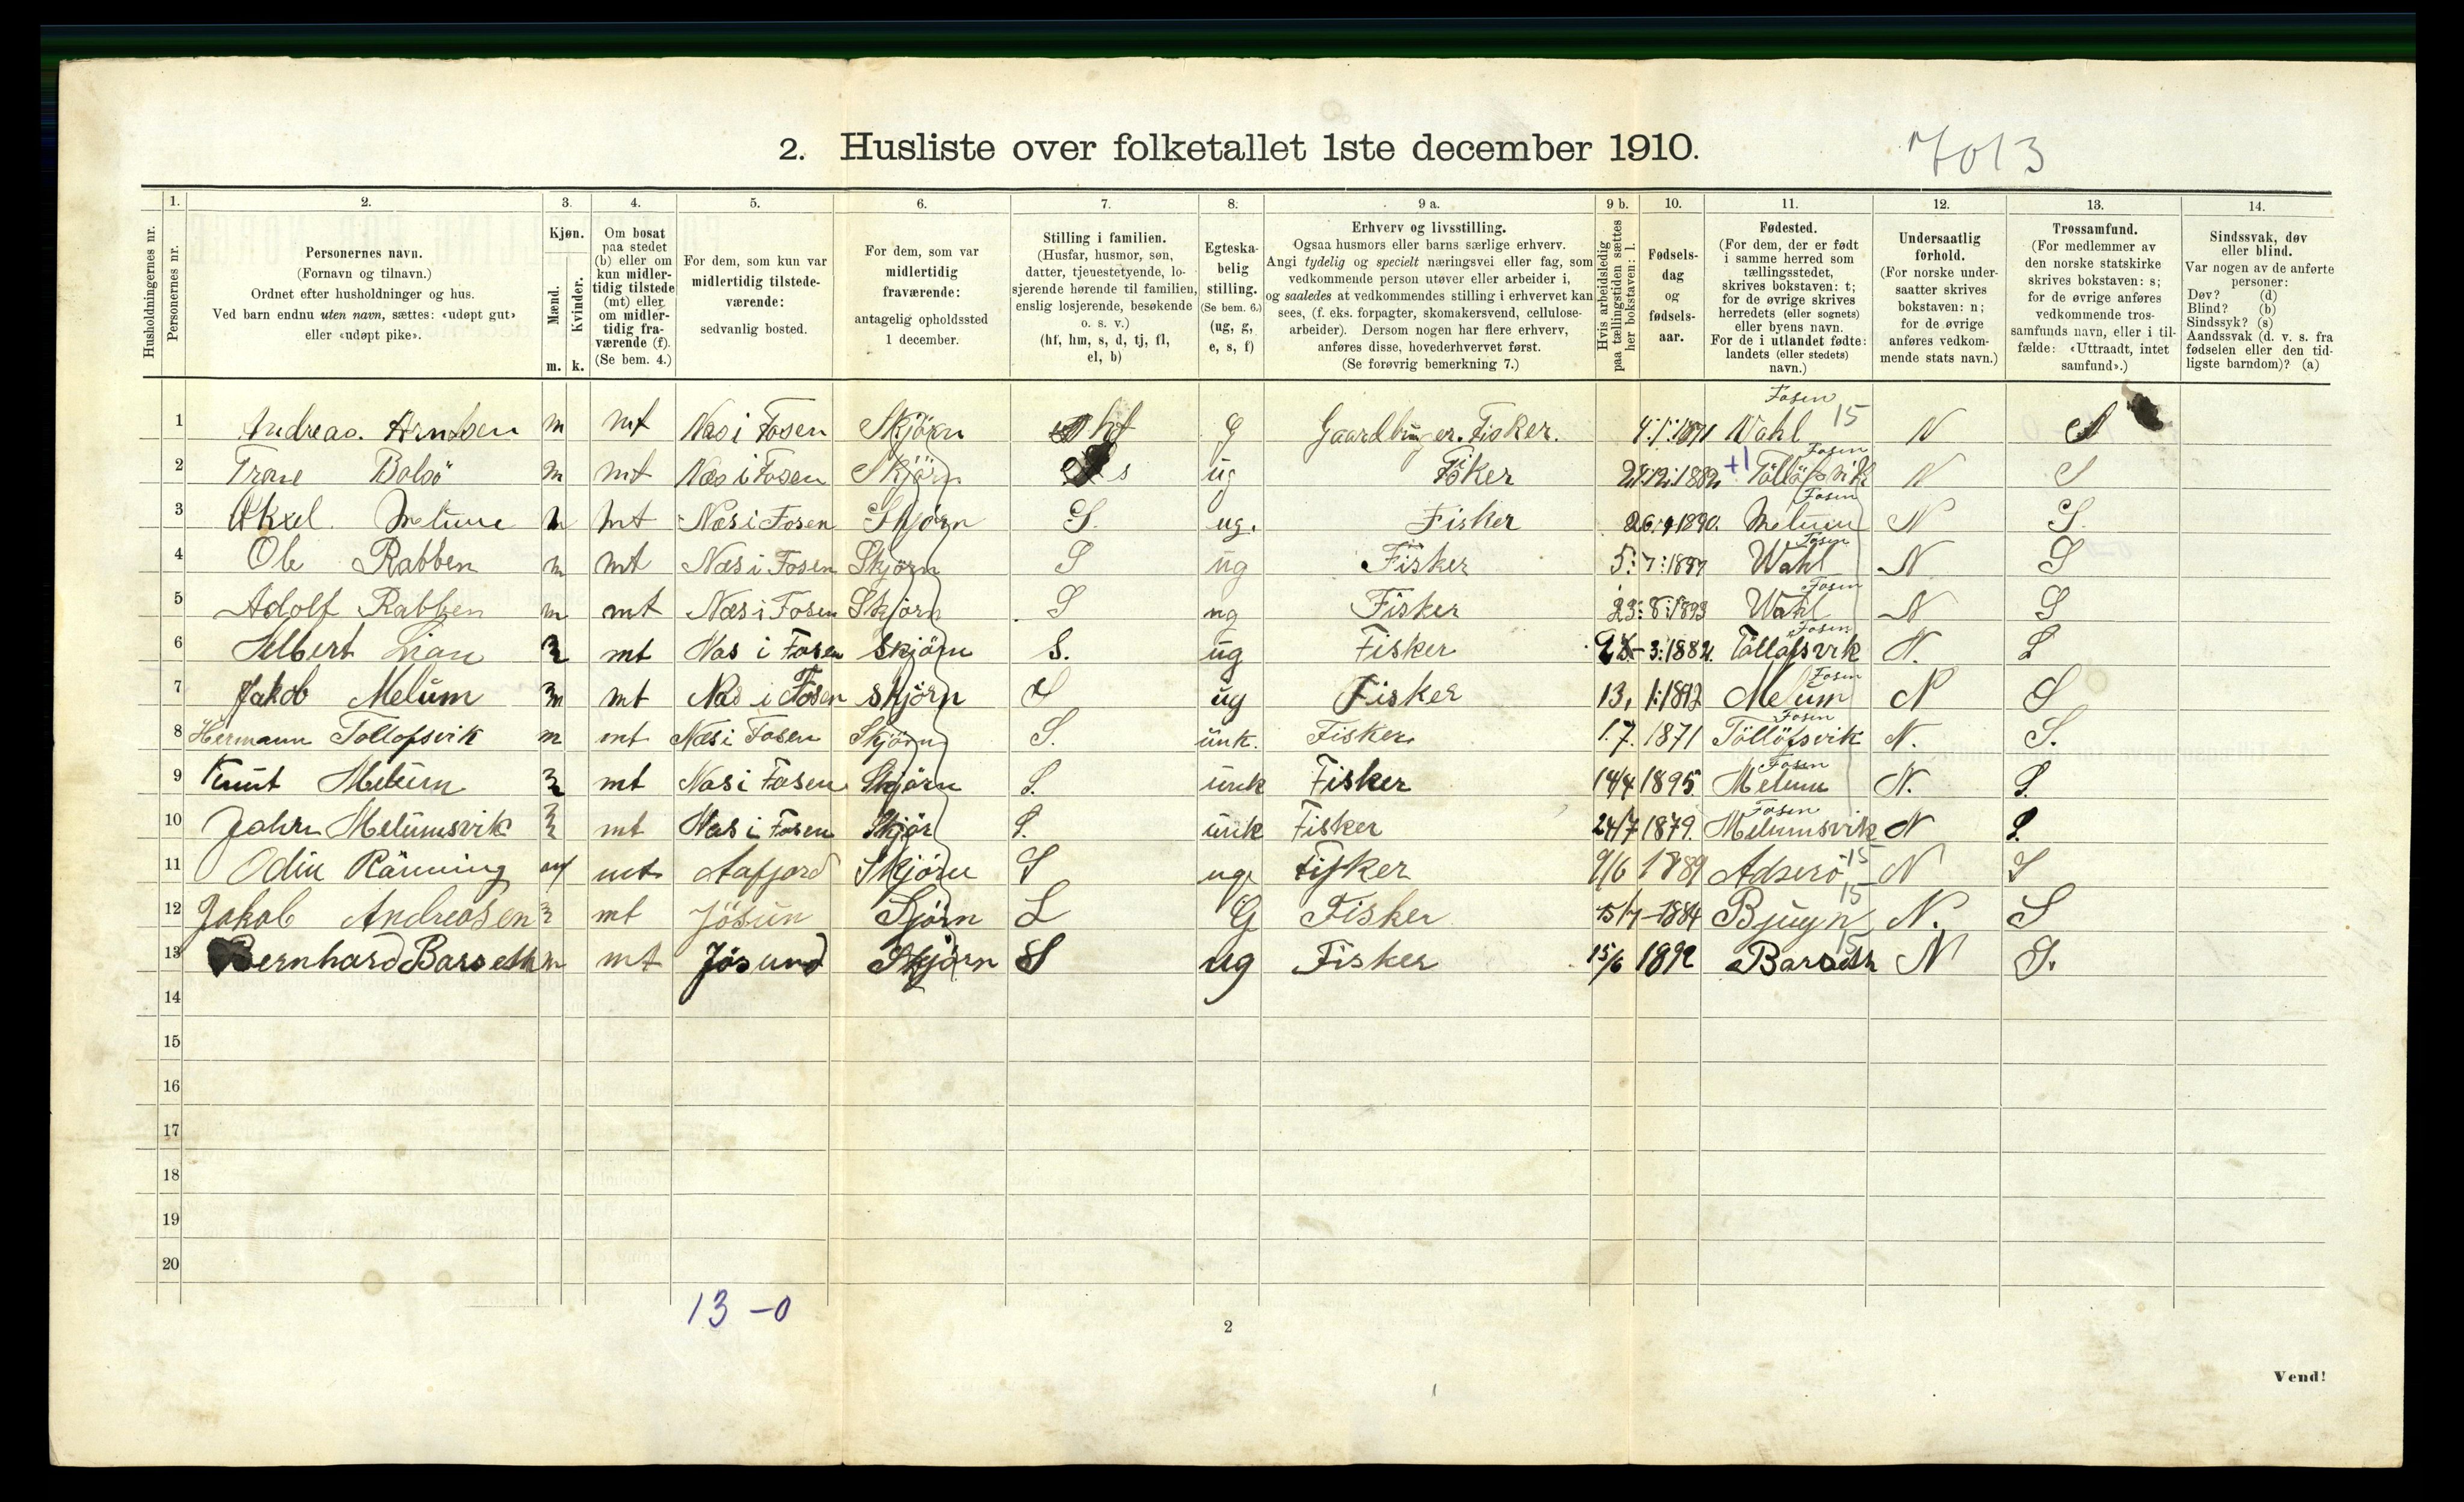 2. Husliste over folketallet 1ste december 1910.
7013
1. 2. 3. 4. 5. 6. 7. 8. 9 a. 9 b. 10. 11. 12. 13. 14.
Husholdningernes nr.
Personernes nr.
Personernes navn.
(Fornavn og tilnavn.)
Ordnet efter husholdninger og hus.
Ved barn endnu uten navn, sættes: «udøpt gut»
eller «udøpt pike».
Kjøn.
Mænd.
Kvinder.
m. k.
Om bosat
paa stedet
(b) eller om
kun midler-
tidig tilstede
(mt) eller
om midler-
tidig fra-
værende (f).
(Se bem. 4.)
For dem, som kun var
midlertidig tilstede-
værende:
sedvanlig bosted.
For dem, som var
midlertidig
fraværende:
antagelig opholdssted
1 december.
Stilling i familien.
(Husfar, husmor, søn,
datter, tjenestetyende, lo-
sjerende hørende til familien,
enslig losjerende, besøkende
o. s. v.)
(hf, hm, s, d, tj, fl,
el, b)
Egteska-
belig
stilling.
(Se bem. 6.)
(ug, g,
e, s, f)
Erhverv og livsstilling.
Ogsaa husmors eller barns særlige erhverv.
Angi tydelig og specielt næringsvei eller fag, som
vedkommende person utøver eller arbeider i,
og saaledes at vedkommendes stilling i erhvervet kan
sees, (f. eks. forpagter, skomakersvend, cellulose-
arbeider). Dersom nogen har flere erhverv,
anføres disse, hovederhvervet først.
(Se forøvrig bemerkning 7.)
Hvis arbeidsledig
paa tællingstiden sættes
her bokstaven: l.
Fødsels-
dag
og
fødsels-
aar.
Fødested.
(For dem, der er født
i samme herred som
tællingsstedet,
skrives bokstaven: t;
for de øvrige skrives
herredets (eller sognets)
eller byens navn.
For de i utlandet fødte:
landets (eller stedets)
navn.)
Undersaatlig
forhold.
(For norske under-
saatter skrives
bokstaven: n;
for de øvrige
anføres vedkom-
mende stats navn.)
Trossamfund.
(For medlemmer av
den norske statskirke
skrives bokstaven: s;
for de øvrige anføres
vedkommende tros-
samfunds navn, eller i til-
fælde: «Uttraadt, intet
samfund».)
Sindssvak, døv
eller blind.
Var nogen av de anførte
personer:
Døv? (d)
Blind? (b)
Sindssyk? (s)
Aandssvak (d. v. s. fra
fødselen eller den tid-
ligste barndom)? (a)
Fosen 15
1 Andreas. Arntsen m mt Næs i Fosen Skjörn hf G Gaardbruger. Fisker. 4:1:1871 Vahl N S
Fosen
2 Trone Bolsö m mt Næs i Fosen Skjörn s ug Fisker +1 Töllöfsvik N S
Fosen
3 Aksel Melum m mt Næs i Fosen Skjörn S. ug. Fisker 1890. Melum N S.
Fosen
4 Ole Rabben m mt Næs i Fosen Skjörn S ug Fisker 5:7: Wahl N S
Fosen
5 Adolf Rabben m mt Næs i Fosen Skjörn S ug Fisker 23:8:1893 Wahl N S
Fosen
6 Lian m mt Næs i Fosen Skjörn S. ug Fisker Töllöfsvik N. S
Fosen
7 Jakob Melum m mt Næs i Fosen Skjörn S ug Fisker 13, 1: Melum N S
Fosen
8 Hermann Tollofsvik m mt Næs i Fosen Skjörn S. unk. Fisker 1.7. 1871 Töllöfsvik N. S.
Fosen
9 Knut Melum m mt Næs i Fosen Skjörn S. unk Fisker 14/4 1895 Melum N. S.
Fosen
10 Johan Melumsvik m mt Næs i Fosen Skjör S. unk Fisker 24/7 1879. Melumsvik N S.
11 Odin Ränning m mt Aafjord Skjörn S ug Fisker 9/6 1889 15 N S
12 Jakob Andreasen m mt Jösun Sjörn L G Fisker 15/7-1884 Bjugn 15 N. S
13 Bernhard Barseth m mt Jösund Skjörn S ug Fisker 15/6 1892 Barseth 15 N S.
14
15
16
17
18
19
20
13 - 0
2
Vend!